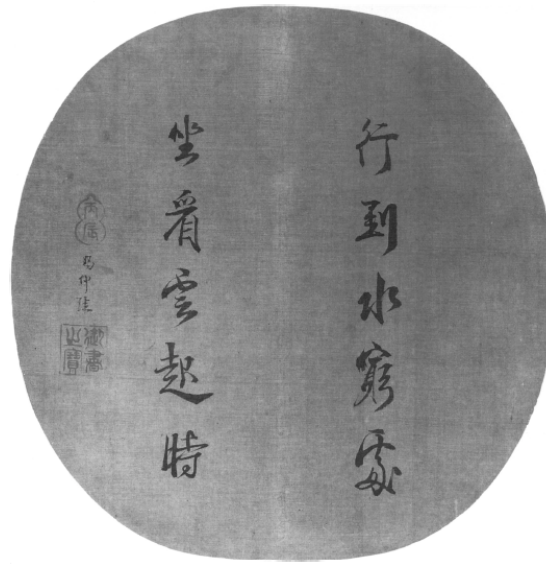 行到水窮處
坐看雲起時
丙辰
御書之寶